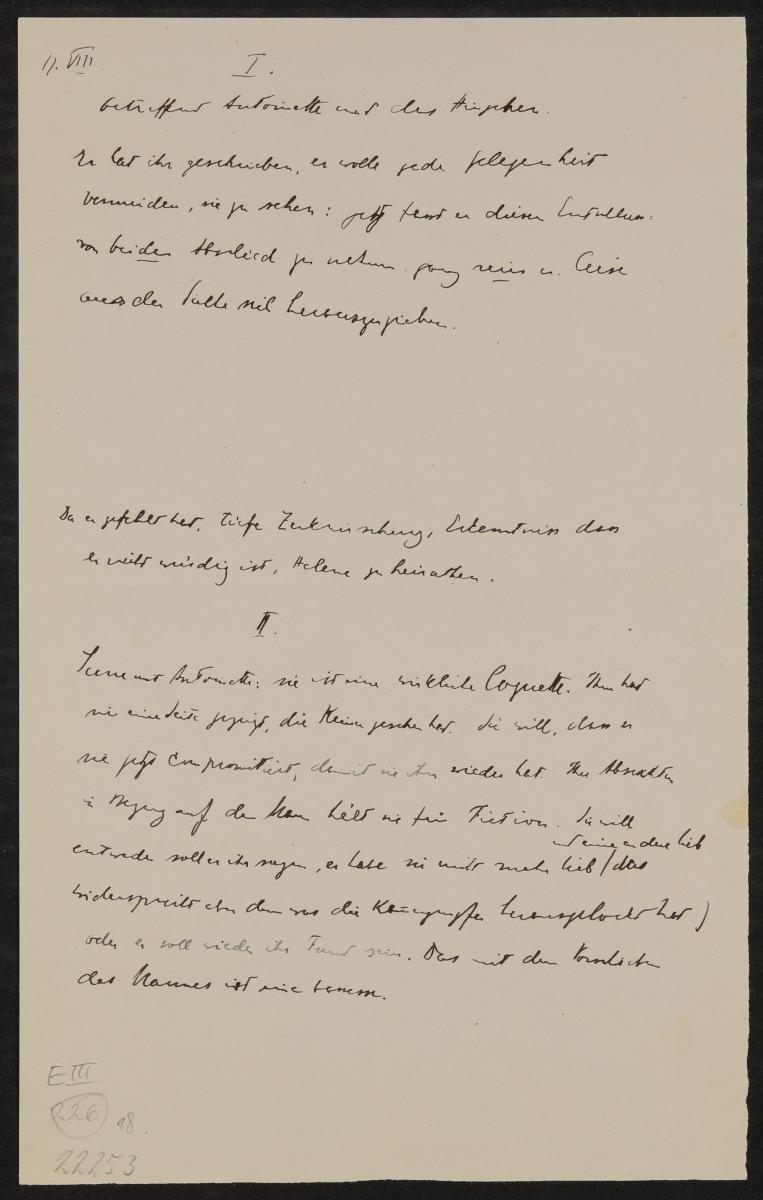 17. VIII
I.
betreffend Antoinette und des Hingehen.
Er hat ihr geschrieben, er wolle jede Gelegenheit
vermeiden, sie zu sehen: jetzt fasst er diesen Entschluss:
von beiden Abschied zu nehmen. ganz und leise
aus der Falle sich herauszuziehen.
Da er gefehlt hat, tiefe Zerknirschung, Erkenntniss dass
er nicht würdig ist, Helene zu heirathen.
II.
Scene mit Antoinette: sie ist eine wirkliche Coquette. Ihm hat
sie eine Seite gezeigt, die Keiner gesehen hat. Sie will, dass er
sie jetzt compromittiert, damit sie ihn wieder hat. Ihre Absichten
in Bezug auf den Mann hält sie für Fiction. Sie will
entweder soll er ihr sagen, er habe sie nicht mehr lieb (das
und eine andere lieb
widerspricht aber dem was die Kammerjungfer herausgelockt hat)
oder er soll wieder ihr Freund sein. Das mit dem
des Mannes ist eine
E III
226 18.
22253